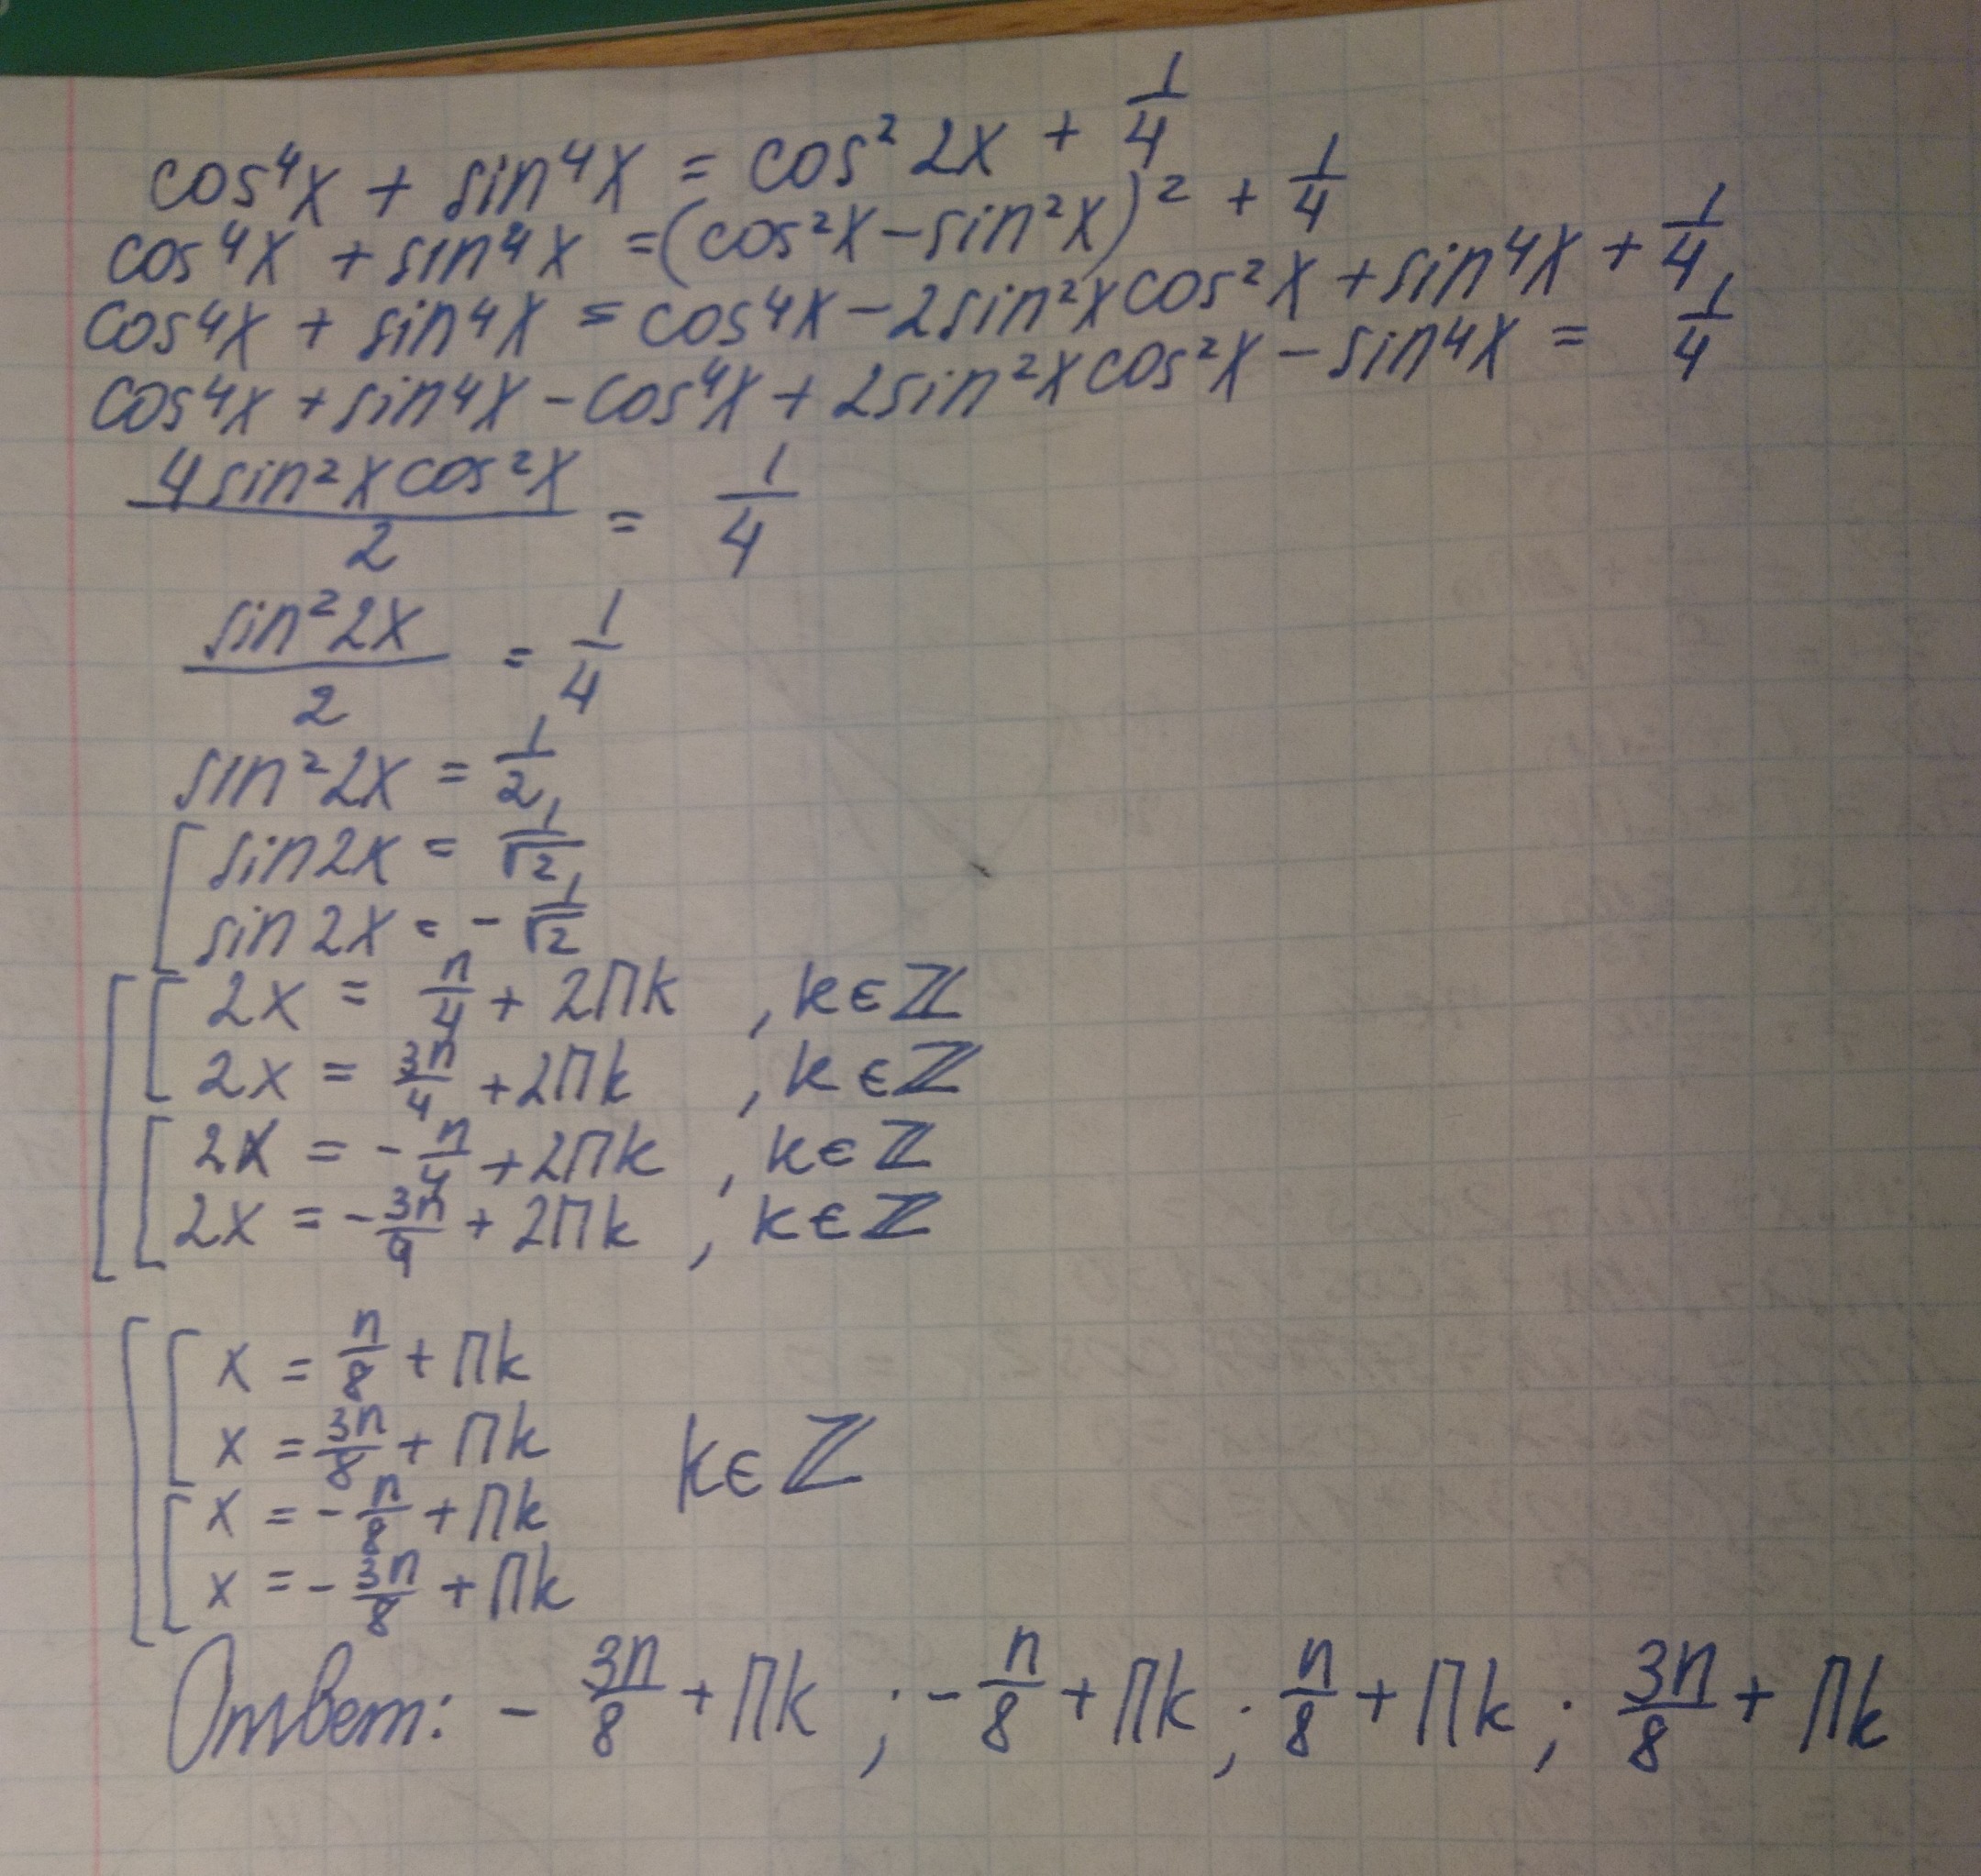 cos⁴x + sin⁴x = cos² 2x + 1/4
cos⁴x + sin⁴x = (cos²x - sin²x)² + 1/4
cos⁴x + sin⁴x = cos⁴x - 2sin²x cos²x + sin⁴x + 1/4
cos⁴x + sin⁴x - cos⁴x + 2sin²x cos²x - sin⁴x = 1/4
4sin²x cos²x / 2 = 1/4
sin²2x / 2 = 1/4
sin²2x = 1/2
[ sin2x = 1/√2
sin2x = - 1/√2
[ [ 2x = π/4 + 2πk , k ∈ ℤ
2x = 3π/4 + 2πk , k ∈ ℤ
[ 2x = - π/4 + 2πk , k ∈ ℤ
2x = - 3π/4 + 2πk , k ∈ ℤ
[ [ x = π/8 + πk
x = 3π/8 + πk k ∈ ℤ
[ x = - π/8 + πk
x = - 3π/8 + πk
Ответ: - 3π/8 + πk ; - π/8 + πk ; π/8 + πk ; 3π/8 + πk